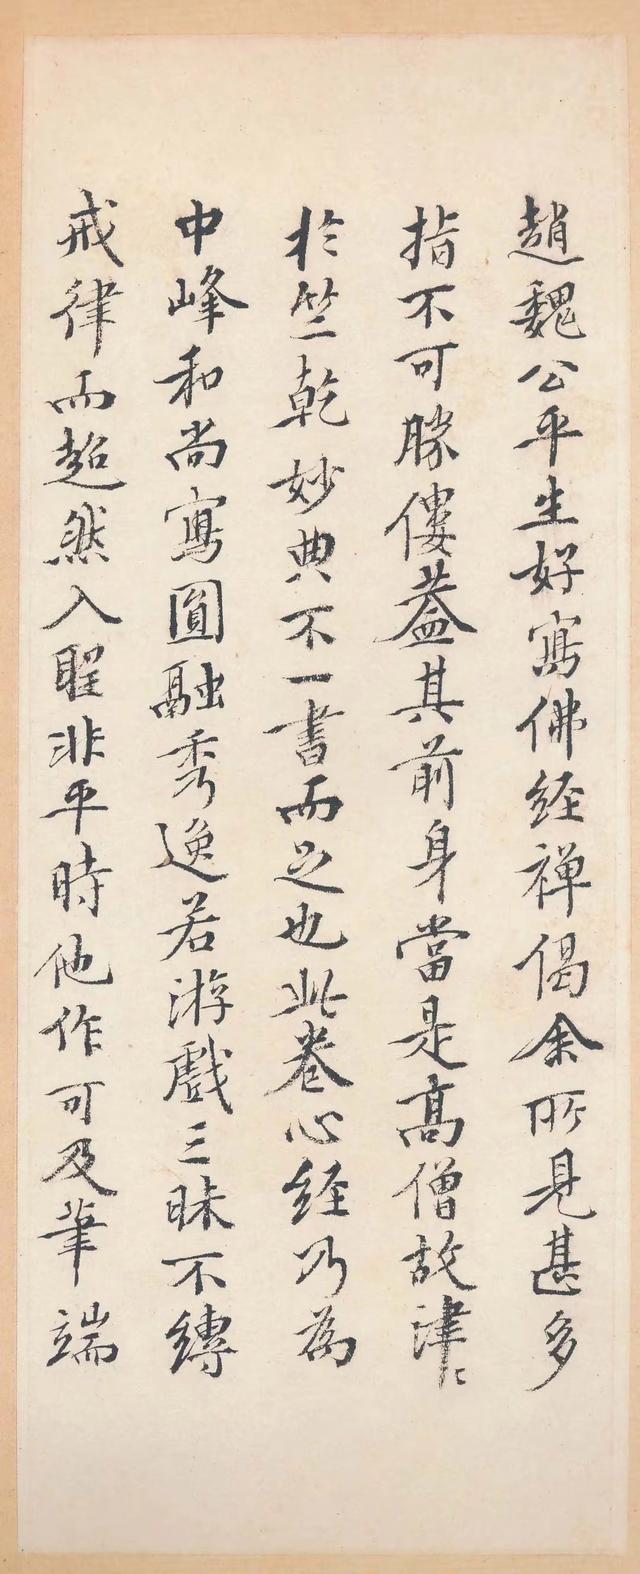 趙魏公平生好寫佛经禅偈余所見甚多
指不可勝僂葢其前身當是髙僧故津〻
扵竺乾妙典不一書而足也此卷心经乃為
中峰和尚寫圓融秀逸若游戲三昧不縛
戒律而超然入聖非平時他作可及筆端